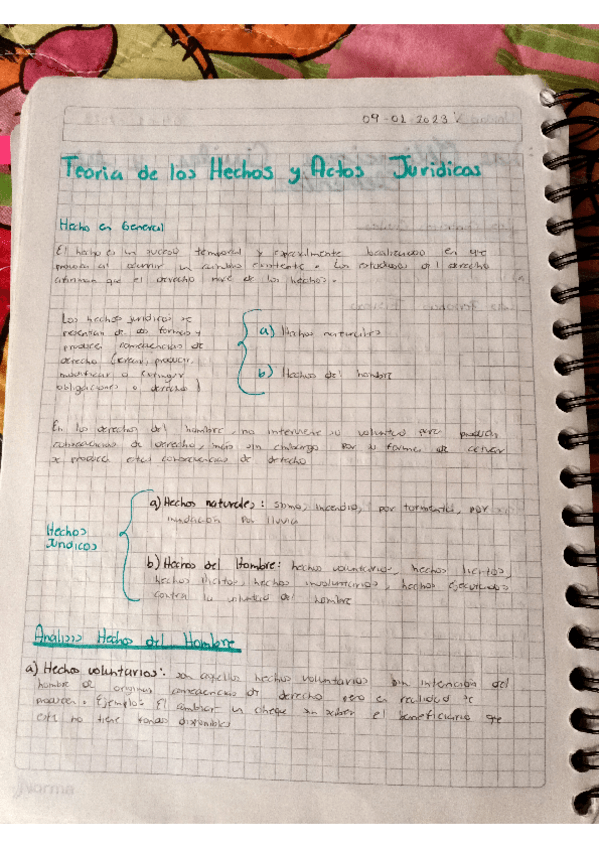 09-01-2023
Teoria de los Hechos y Actos Juridicos
Hecho en General
El hecho es un suceso temporal y espacialmente localizado en que
provoca al ocurrir un cambio existente. Los estudiosos del derecho
afirman que el derecho nace de los hechos.
Los hechos juridicos se
de dos formas y
produce consecuencias de
derecho (crear, producir,
modificar o extinguir
obligaciones o derecho)
a) Hechos naturales
b) Hechos del hombre
En los derechos del hombre, no interviene su voluntad para producir
consecuencias de derecho, más sin embargo por su forma de actuar
se produce estas consecuencias de derecho
Hechos
Juridicos
a) Hechos naturales: sismo, incendio, por tormenta, por
inundación por lluvia
b) Hechos del Hombre: hechos voluntarios, hechos licitos,
hechos ilicitos, hechos involuntarios, hechos ejecutados
contra la voluntad del hombre
Analisis Hechos del Hombre
a) Hechos voluntarios: son aquellos hechos voluntarios sin intención del
hombre de originar consecuencias de derecho pero en realidad se
producen. Ejemplo: El cambiar un cheque sin saber el beneficiario que
este no tiene fondos disponibles
Norma